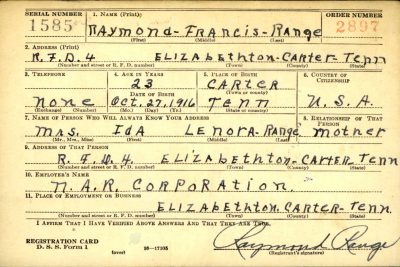 SERIAL NUMBER 1. NAME (Print) ORDER NUMBER
1585 RAYMOND-FRANCIS-RANGE 2897
(First) (Middle) (Last)
2. ADDRESS (Print)
R.F.D.4 ELIZABETHTON-CARTER-TENN
(Number and street or R. F. D. number) (Town) (County) (State)
3. TELEPHONE 4. AGE IN YEARS 5. PLACE OF BIRTH 6. COUNTRY OF CITIZENSHIP
23 CARTER
DATE OF BIRTH (Town or county)
none Oct. 27, 1916 TENN U.S.A.
(Exchange) (Number) (Mo.) (Day) (Yr.) (State or country)
7. NAME OF PERSON WHO WILL ALWAYS KNOW YOUR ADDRESS 8. RELATIONSHIP OF THAT PERSON
MRS. IDA LENORA-RANGE mother
(Mr., Mrs., Miss) (First) (Middle) (Last)
9. ADDRESS OF THAT PERSON
R.F.D.4 ELIZABETHTON-CARTER-TENN
(Number and street or R. F. D. number) (Town) (County) (State)
10. EMPLOYER'S NAME
N.A.R. CORPORATION.
11. PLACE OF EMPLOYMENT OR BUSINESS
ELIZABETHTON-CARTER-TENN
(Number and street or R. F. D. number) (Town) (County) (State)
I AFFIRM THAT I HAVE VERIFIED ABOVE ANSWERS AND THAT THEY ARE TRUE.
REGISTRATION CARD Raymond Range
D. S. S. Form 1 (over) 16—17105 (Registrant's signature)